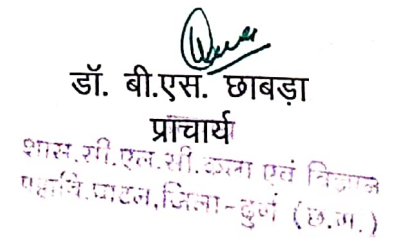 डॉ. बी.एस. छाबड़ा
प्राचार्य
शास. सी.एल.सी. कला एवं विज्ञान
महावि. पाटन, जिला-दुर्ग (छ.ग.)